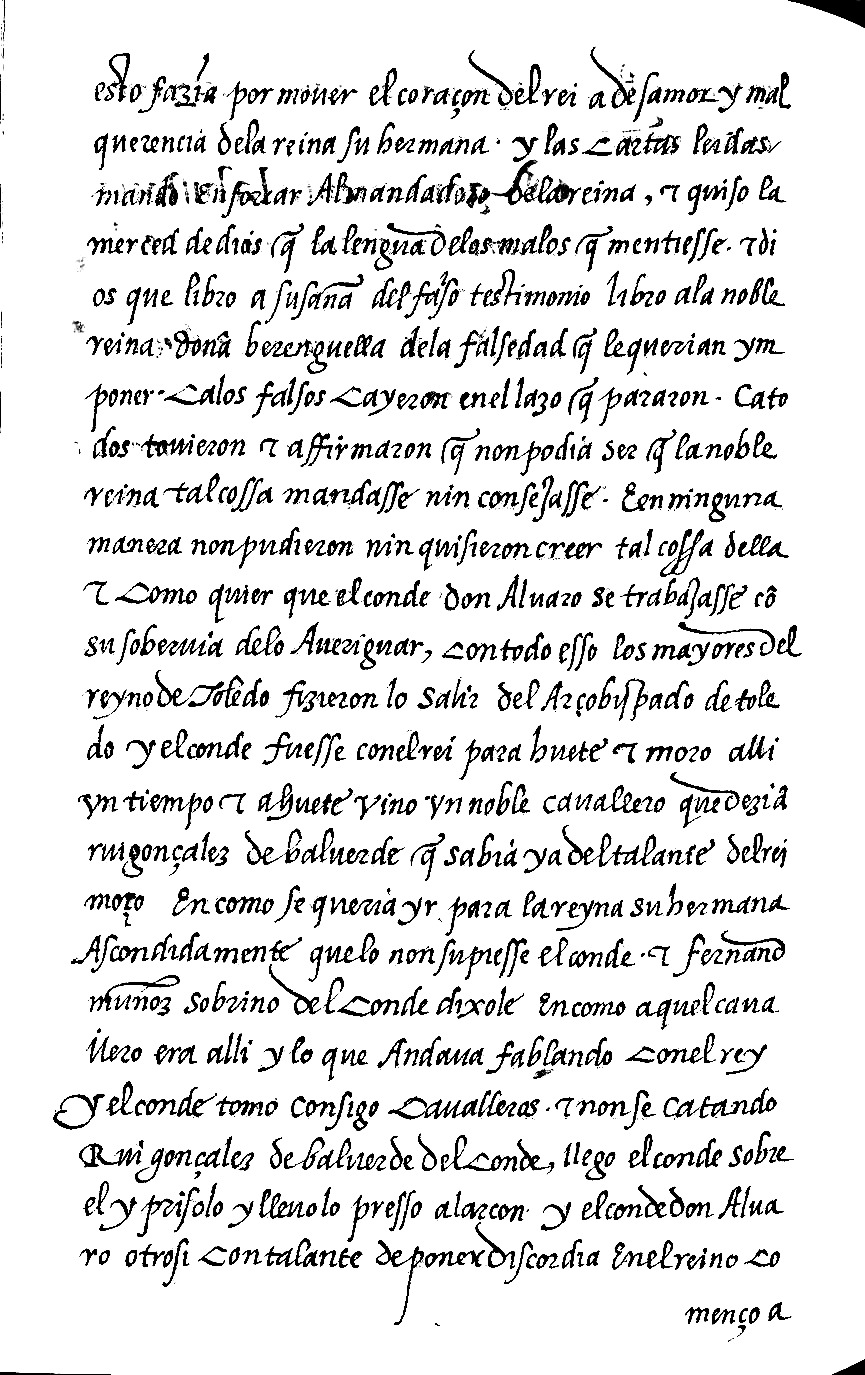 esto fazia por mouer el coraçon del rei a desamor y mal
querencia dela reina su hermana · y las Cartas leidas
mando enforcar Al mandadero dela reina, τ quiso la
merced de dios q̃ la lengua delos malos q̃ mentiesse · τ di
os que libro a susana del falso testimonio libro ala noble
reina doña berenguella dela falsedad q̃ le querian ym
poner · Ca los falsos Cayeron en el lazo q̃ pararon · Ca to
dos touieron τ affirmaron q̃ non podia ser q̃ la noble
reina tal cossa mandasse nin consejasse · E en ninguna
manera non pudieron nin quisieron creer tal cossa della
τ Como quier que el conde don Aluaro se trabajasse cõ
su soberuia delo Aueriguar, con todo esso los mayores del
reyno de Toledo fizieron lo Salir del Arçobispado de tole
do y el conde fuesse con el rei para huete τ moro alli
yn tiempo τ a huete vino yn noble cauallero que dezia
rui gonçalez de balverde q̃ sabia ya del talante del rei
moço En como se queria yr para la reyna su hermana
Ascondidamente que lo non supiesse el conde · τ fernand
munoz sobrino del Conde dixole En como aquel caua
llero era alli y lo que Andaua fablando Con el rey
y el conde tomo Consigo Caualleros · τ non se Catando
Rui gonçalez de balverde del Conde, llego el conde sobre
el y prisolo y lleuolo presso alarcon · y el conde don Alua
ro otrosi Con talante de poner discordia En el reino Co
menço a